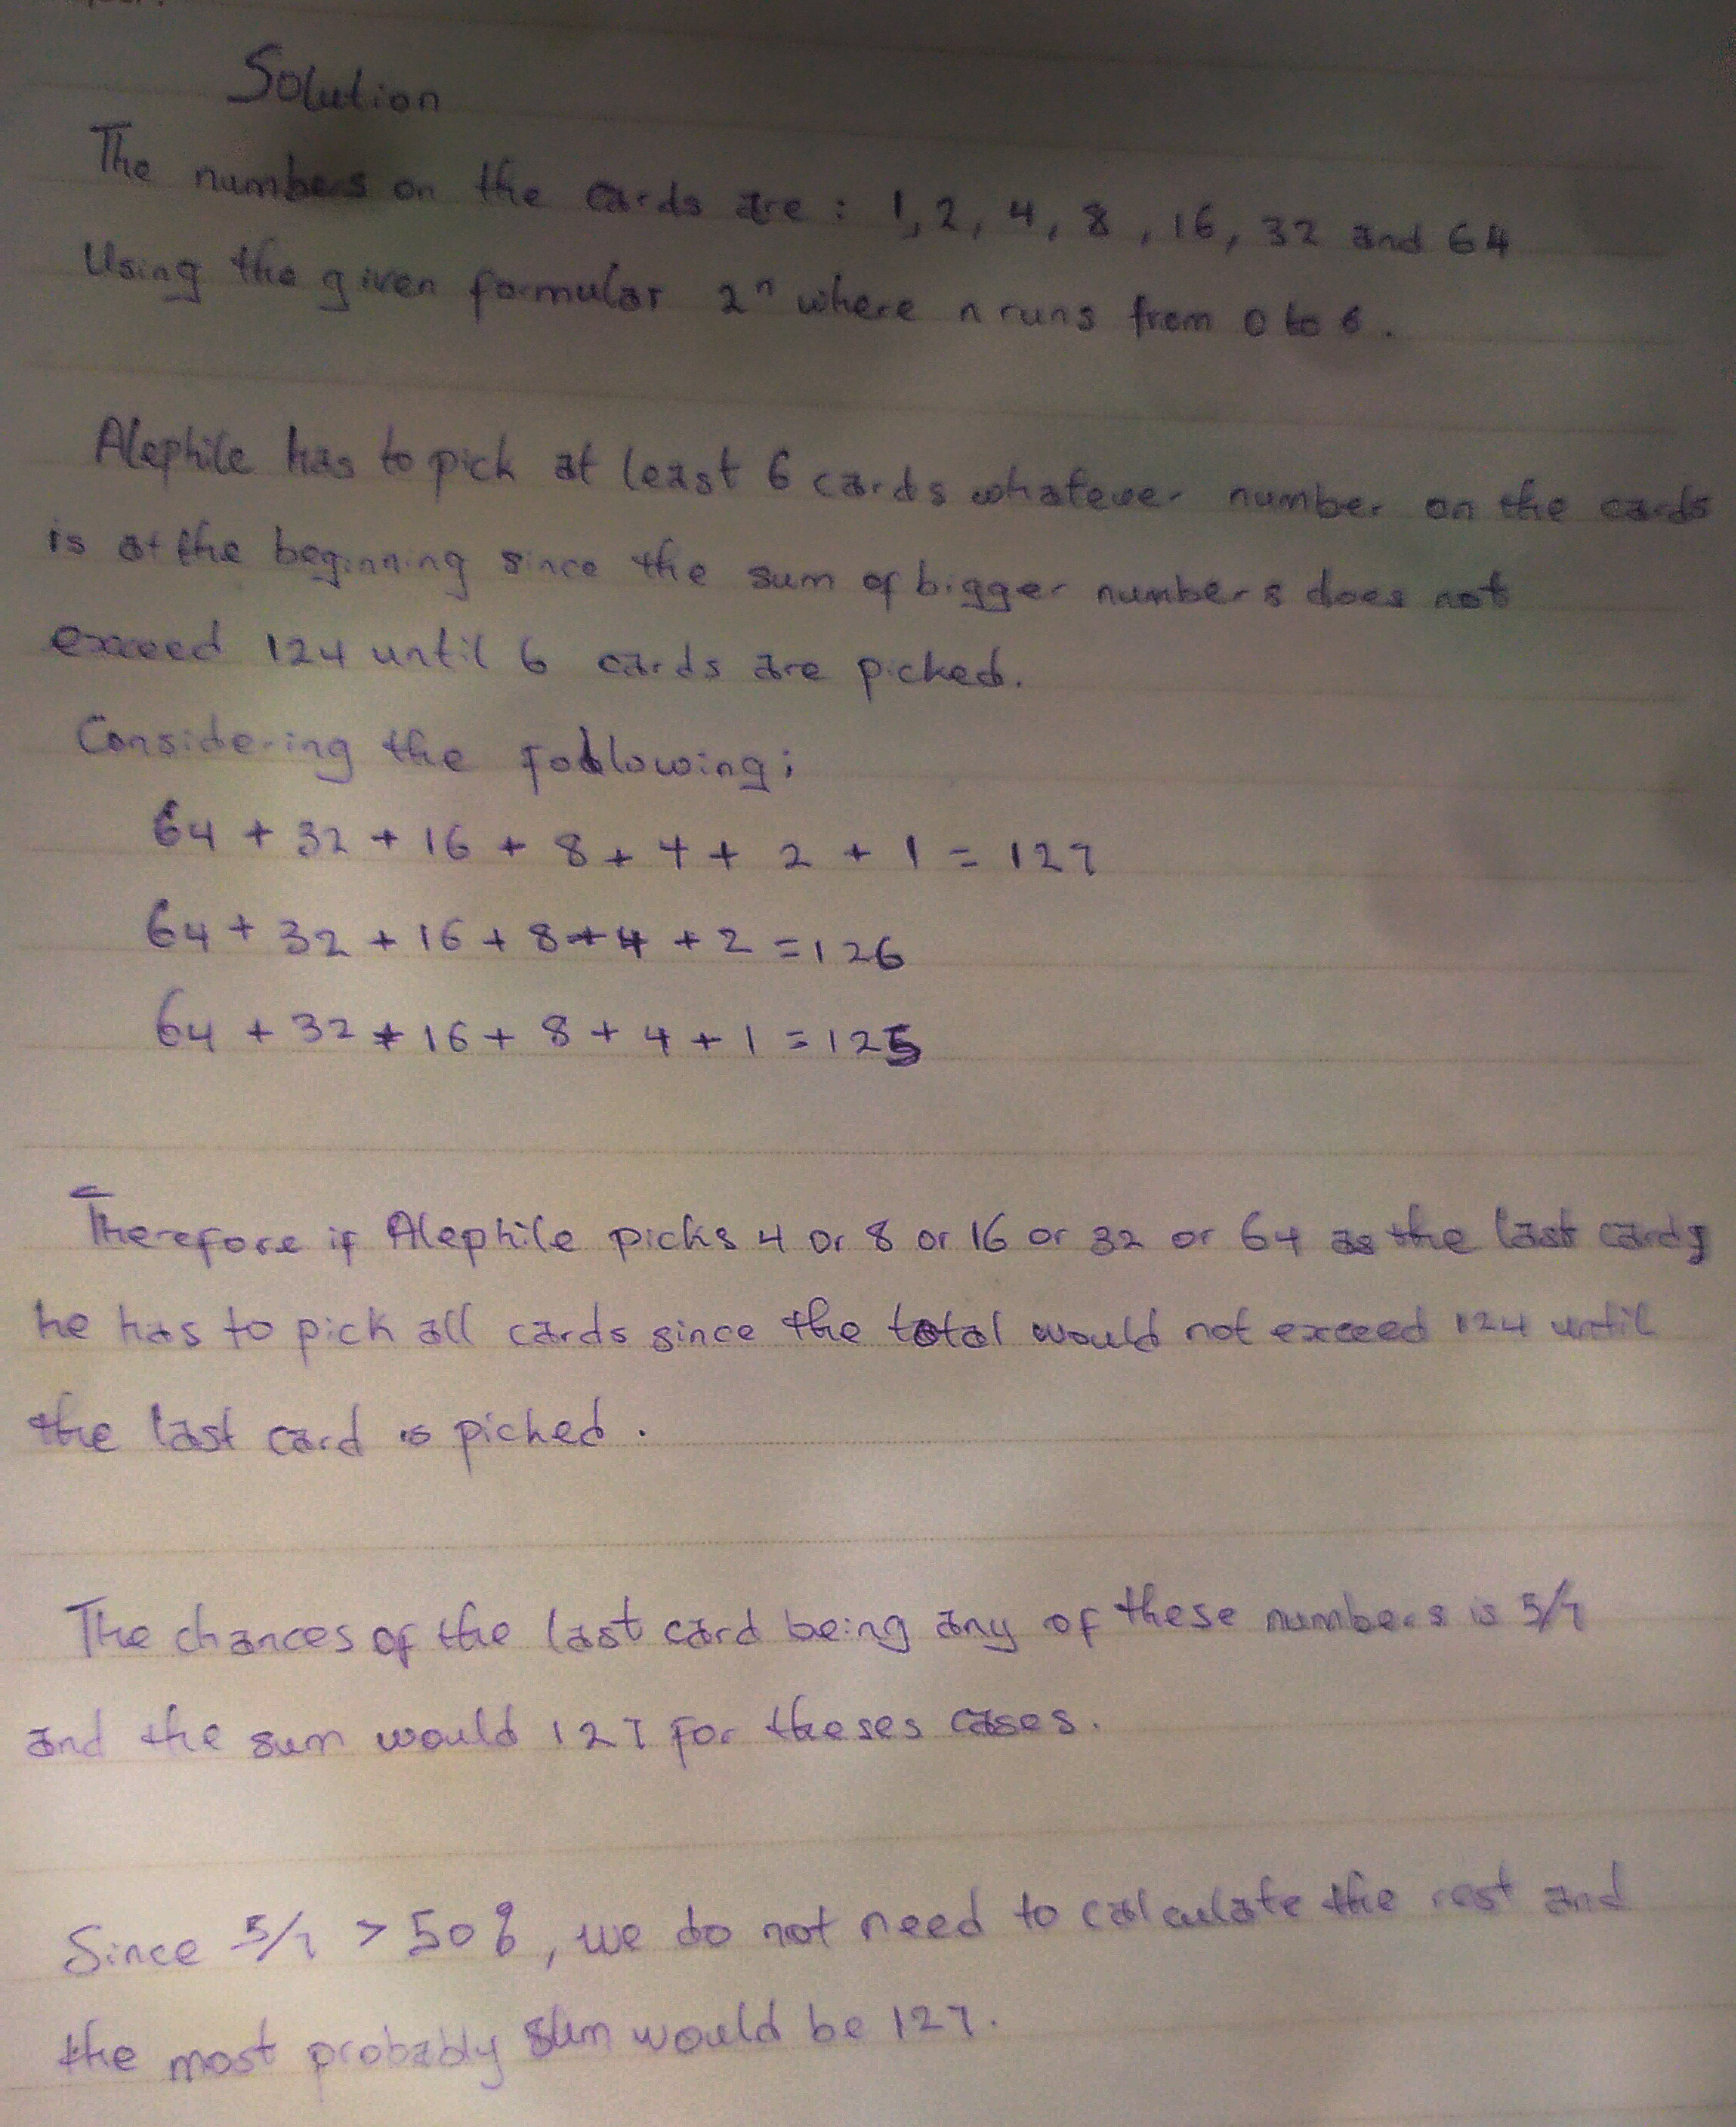 Solution
The numbers on the cards are : 1, 2, 4, 8, 16, 32 and 64
Using the given formular 2ⁿ where n runs from 0 to 6.
Alephile has to pick at least 6 cards whatever number on the cards
is at the beginning since the sum of bigger numbers does not
exceed 124 until 6 cards are picked.
Considering the following;
64 + 32 + 16 + 8 + 4 + 2 + 1 = 127
64 + 32 + 16 + 8 + 4 + 2 = 126
64 + 32 + 16 + 8 + 4 + 1 = 125
Therefore if Alephile picks 4 or 8 or 16 or 32 or 64 as the last card,
he has to pick all cards since the total would not exceed 124 until
the last card is picked.
The chances of the last card being any of these numbers is 5/7
and the sum would 127 for theses cases.
Since 5/7 > 50%, we do not need to calculate the rest and
the most probably sum would be 127.